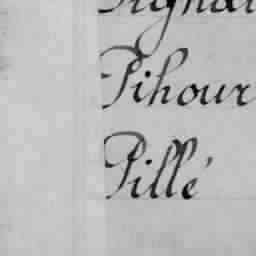 Pihour
Pillé